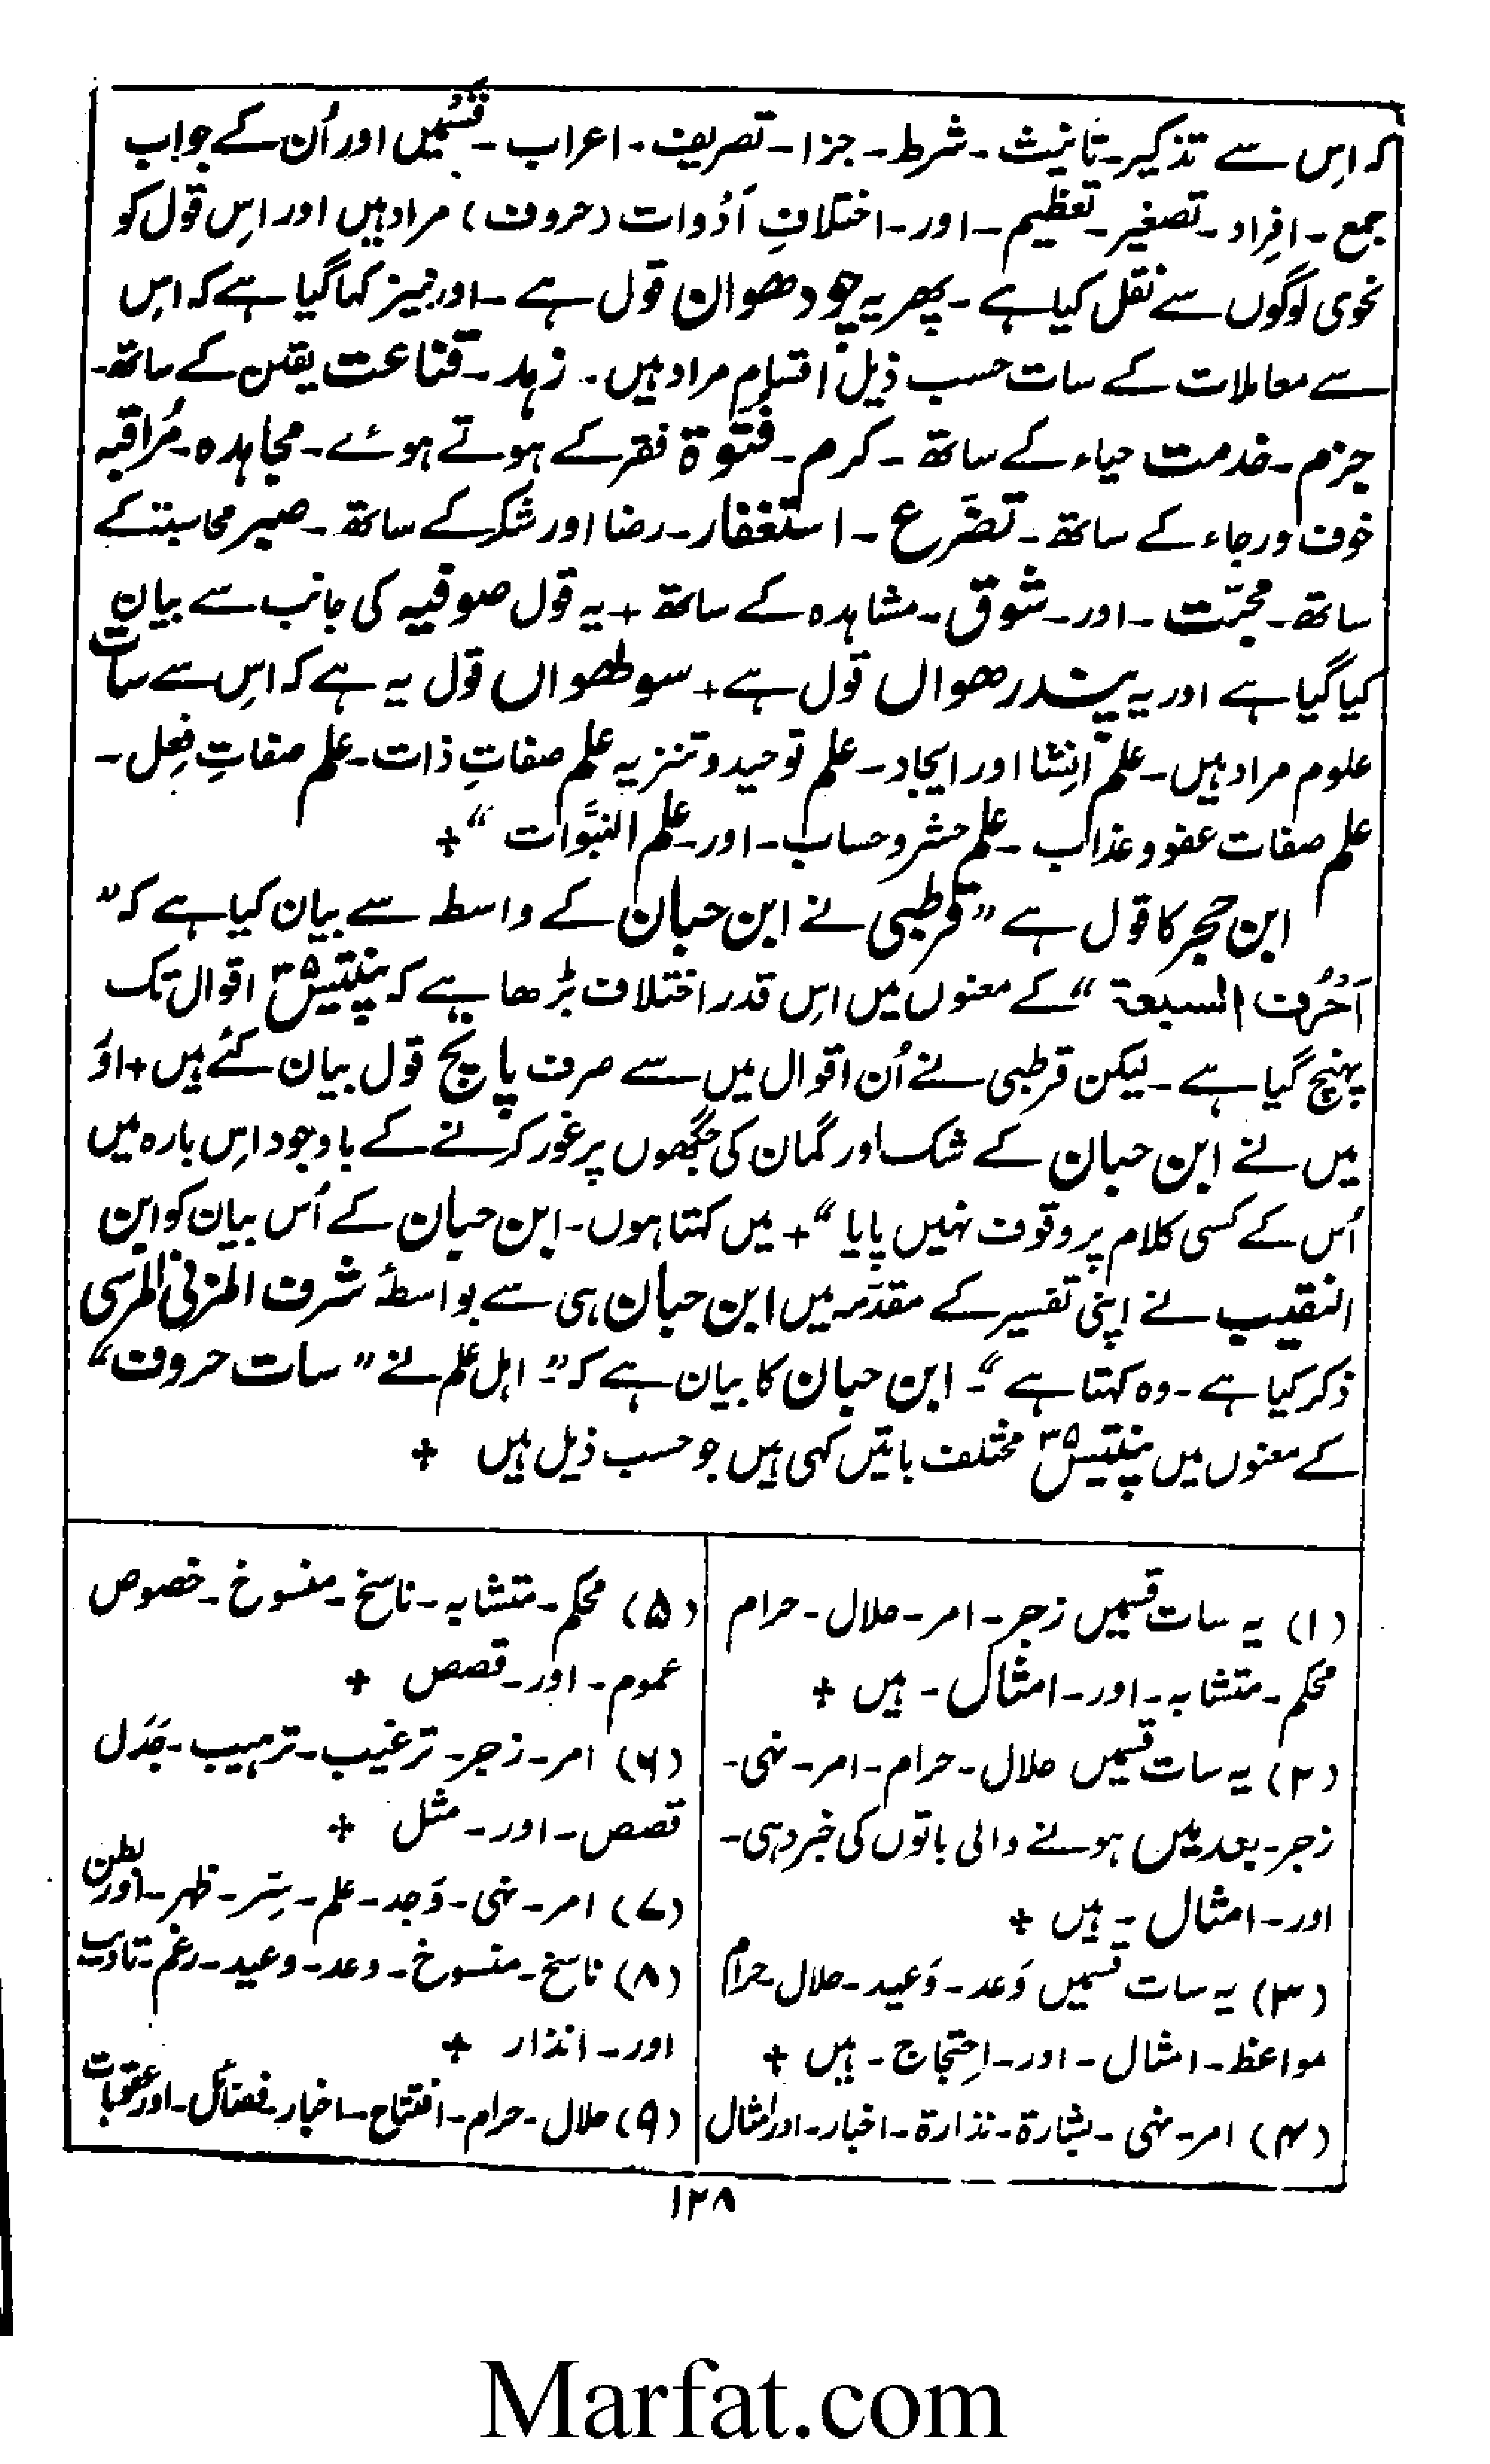 کہ اِس سے تذکیر۔ تانیث۔ شرط۔ جزا۔ تصریف۔ اعراب۔ قَسَمیں اور اُن کے جواب
جمع۔ اِفراد۔ تصغیر۔ تعظیم۔ اور۔ اختلافِ اَدَوات (حروف) مراد ہیں اور اِس قول کو
نحوی لوگوں سے نقل کیا ہے۔ پھر یہ چودھوان قول ہے۔ اور نیز کہا گیا ہے کہ اِس
سے معاملات کے سات حسب ذیل اقسام مراد ہیں۔ زہد۔ قناعت یقین کے ساتھ۔
جزم۔ خدمت حیاء کے ساتھ۔ کرم۔ فتوۃ فقر کے ہوتے ہوئے۔ مجاہدہ۔ مُراقبہ
خوف ورجاء کے ساتھ۔ تضرع۔ استغفار۔ رضا اور شکر کے ساتھ۔ صبر محاسبتہ کے
ساتھ۔ محبّت۔ اور۔ شوق۔ مشاہدہ کے ساتھ + یہ قول صوفیہ کی جانب سے بیان
کیا گیا ہے اور یہ پندرھواں قول ہے + سولھواں قول یہ ہے کہ اِس سے سات
علوم مراد ہیں۔ علم اِنشا اور ایجاد۔ علم توحید و تنزیہ علم صفاتِ ذات۔ علم صفاتِ فعل۔
علم صفات عفو و عذاب۔ علم حشر و حساب۔ اور۔ علم النبَّوات“ +
ابن حجر کا قول ہے ”قرطبی نے ابن حبان کے واسطہ سے بیان کیا ہے کہ ”
اَحْرُف السبعۃ“ کے معنوں میں اِس قدر اختلاف بڑھا ہے کہ پینتیس ۳۵ اقوال تک
پہنچ گیا ہے۔ لیکن قرطبی نے اُن اقوال میں سے صرف پانچ قول بیان کئے ہیں + اوَر
میں نے ابن حبان کے شک اور گمان کی جگھوں پر غور کرنے کے باوجود اِس بارہ میں
اُس کے کسی کلام پر وقوف نہیں پایا“ + میں کہتا ہوں۔ ابن حبان کے اُس بیان کو ابن
النقیب نے اپنی تفسیر کے مقدّمہ میں ابن حبان ہی سے بواسطۂ شرف المزنی المرسی
ذکر کیا ہے۔ وہ کہتا ہے“۔ ابن حبان کا بیان ہے کہ ”۔ اہل علم نے ”سات حروف“
کے معنوں میں پینتیس ۳۵ مختلف باتیں کہی ہیں جو حسب ذیل ہیں +
(۱) یہ سات قسمیں زجر۔ امر۔ حلال۔ حرام
محکم۔ متشابہ۔ اور۔ امثال۔ ہیں +
(۲) یہ سات قسمیں حلال۔ حرام۔ امر۔ نہی۔
زجر۔ بعد میں ہونے والی باتوں کی خبر دہی۔
اور۔ امثال۔ ہیں +
(۳) یہ سات قسمیں وَعد۔ وَعید۔ حلال۔ حرام
مواعظ۔ امثال۔ اور۔ اِحتجاج۔ ہیں +
(۴) امر۔ نہی۔ بشارۃ۔ نذارۃ۔ اخبار۔ اور امثال
(۵) محکم۔ متشابہ۔ ناسخ۔ منسوخ۔ خصوص
عموم۔ اور۔ قصص +
(۶) امر۔ زجر۔ ترغیب۔ ترہیب۔ جَدَل
قصص۔ اور۔ مثل +
(۷) امر۔ نہی۔ وَجد۔ علم۔ سِتر۔ ظہر۔ اور بطن
(۸) ناسخ۔ منسوخ۔ وعد۔ وعید۔ رغم۔ تادیب
اور۔ انذار +
(۹) حلال۔ حرام۔ افتتاح۔ اخبار۔ فضائل۔ اور عقوبات
۱۲۸
Marfat.com